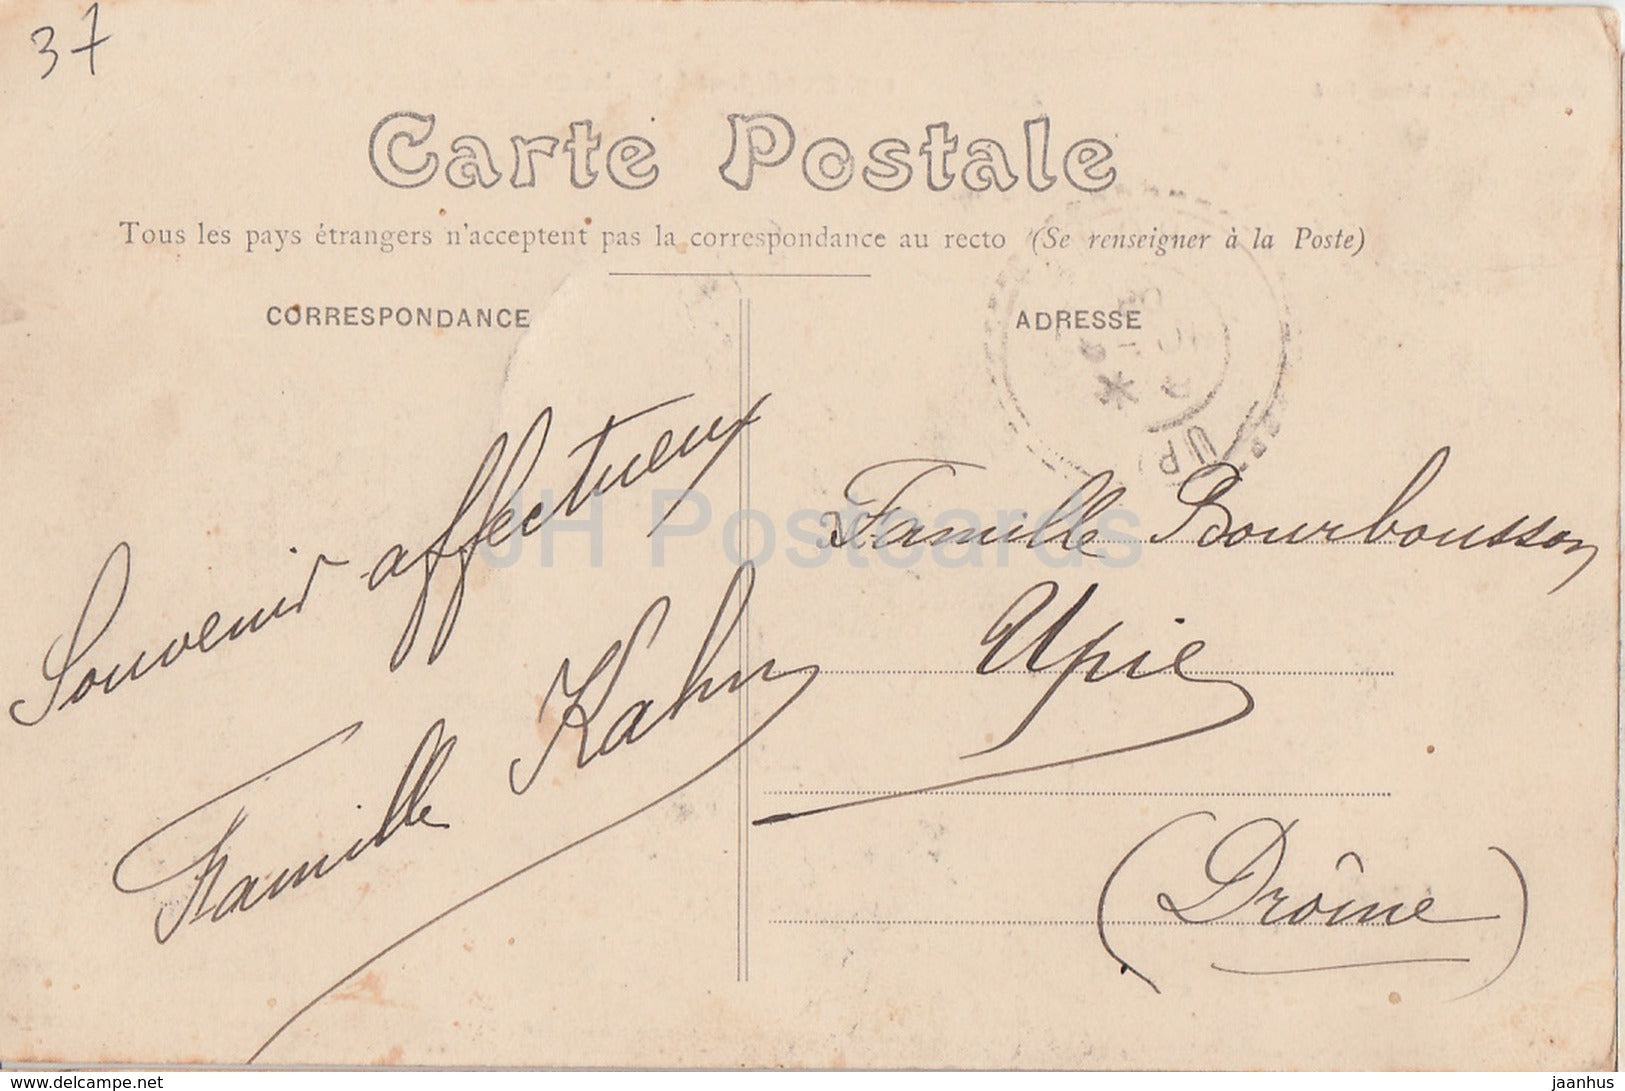 37
Carte Postale
Tous les pays étrangers n'acceptent pas la correspondance au recto (Se renseigner à la Poste)
CORRESPONDANCE
ADRESSE
UP
Souvenir affectueux
Famille Kahn
Famille Bourbousson
Upie
(Drôme)
JH Postcards
www.delcampe.net
jaanhus